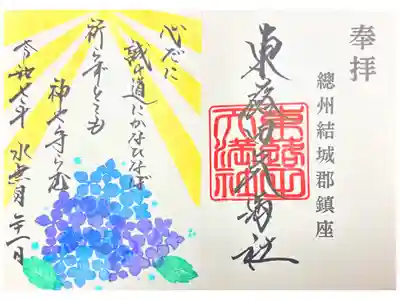 奉拝
總州結城郡鎮座
東蕗田天満社
心だに
誠の道にかなひなば
祈らずとても
神や守らむ
令和七年 水無月 二十一日